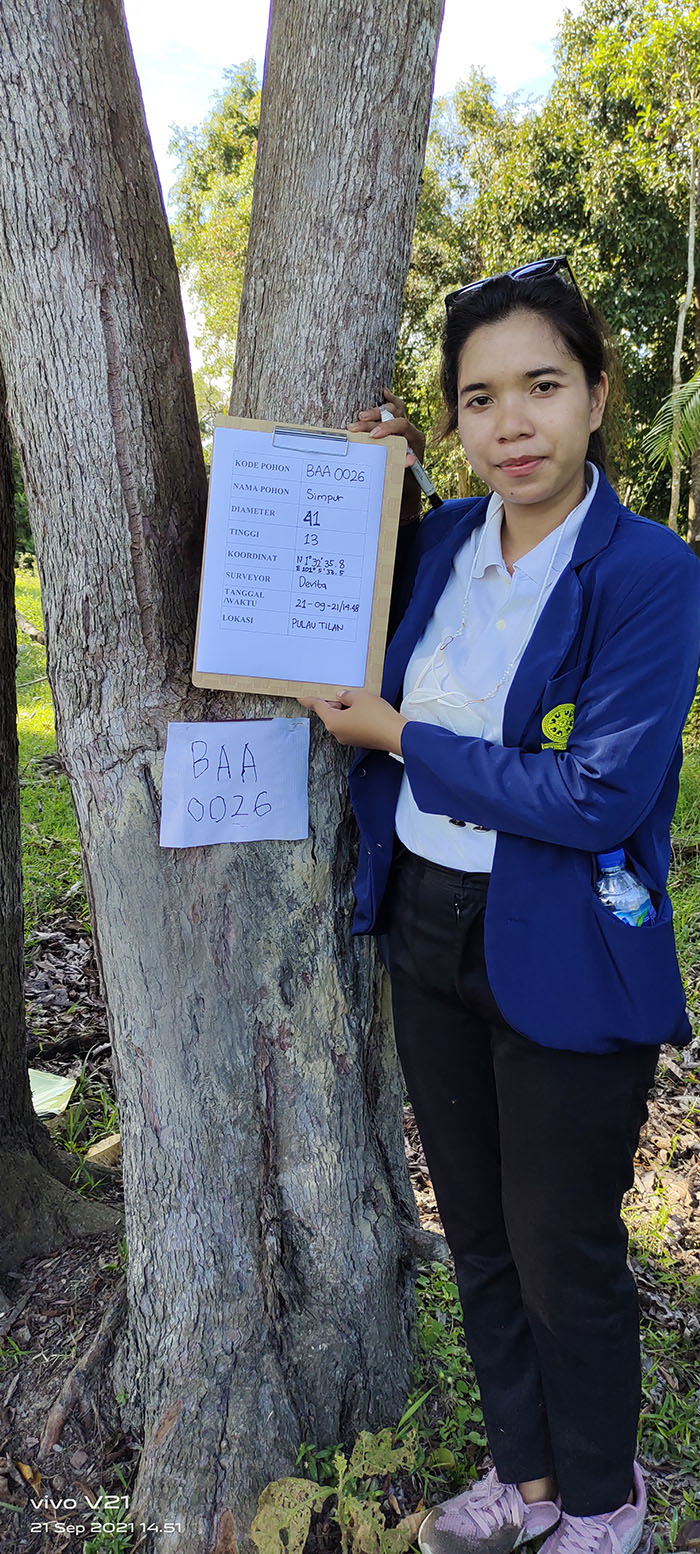 KODE POHON BAA 0026
NAMA POHON Simpur
DIAMETER 41
TINGGI 13
KOORDINAT N 1° 32' 35.8
E 101° 5' 34.5
SURVEYOR Devita
TANGGAL
/WAKTU 21-09-21/14.48
LOKASI PULAU TILAN
BAA
0026
vivo V21
21 Sep 2021 14.51